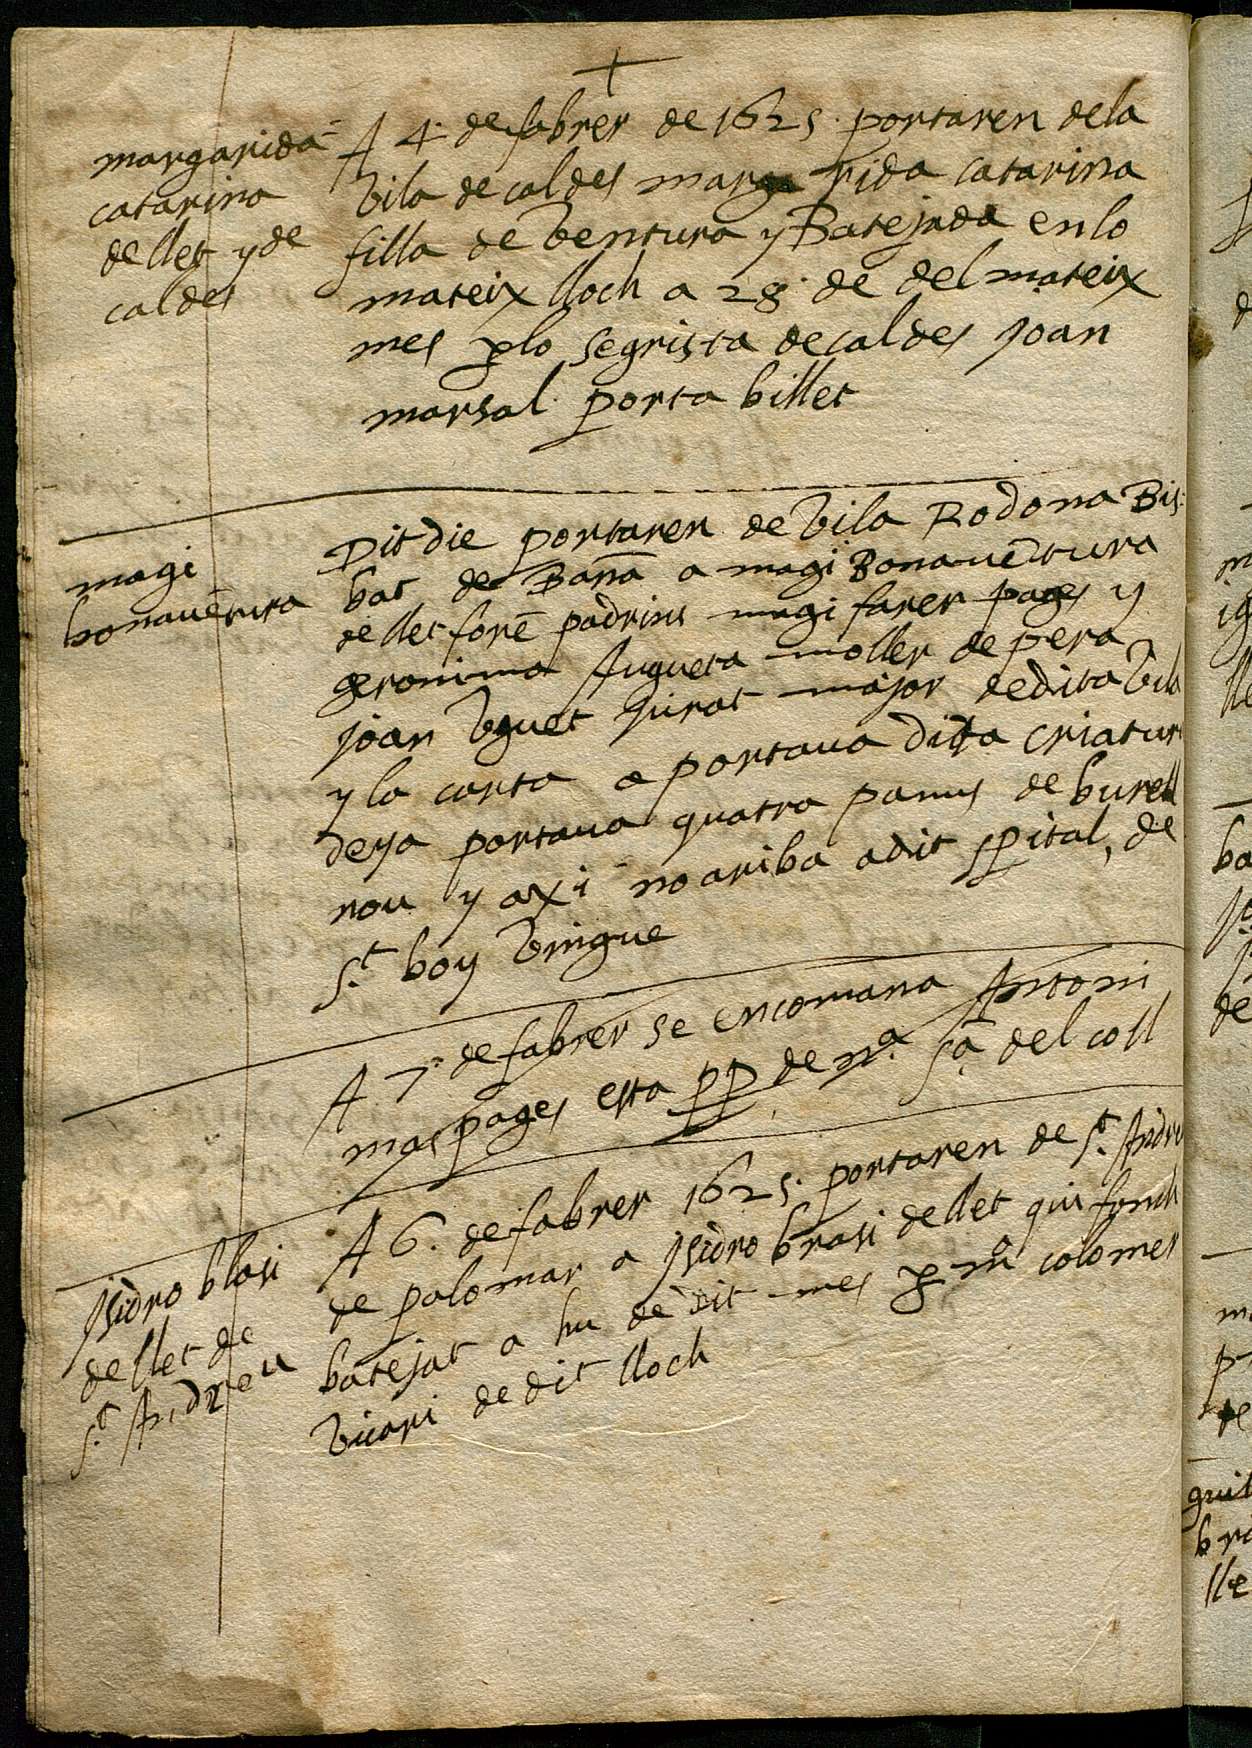 margarida
catarina
de llet y de
caldes
A 4. de fabrer de 1625. portaren de la
vila de caldes margarida catarina
filla de ventura y Batejada en lo
mateix lloch a 28. de del mateix
mes plo segrista de caldes Joan
marsal porta billet
magi
bonavētura
Dit die portaren de vila Rodona Bis
bat de Barna a magi Bonavētura
de llet forē padrins magi farer pages y
geronima Augueta moller de pera
joan uguet Jurat major de dita vila
y la carta a portava dita criatur
deya portava quatra pams de burell
nou y axi no ariba a dit spital, de
St. boy vingue
A 7. de fabrer se encomana Antoni
mas pages esta pp de na. sa. del coll
Isidro blasi
de llet de
St. Andreu
A 6. de fabrer 1625. portaren de St. Andreu
de palomar a Isidro brasi de llet qui fonch
batejat a hu de dit mes p mo colomer
vicari de dit lloch